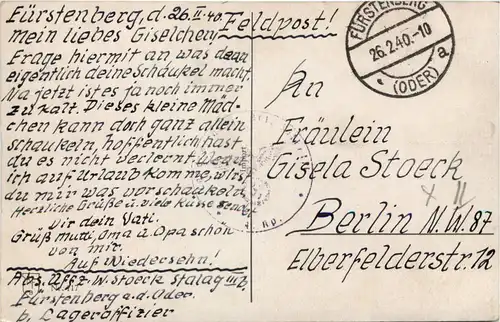 Fürstenberg, d. 26.II.40.
mein liebes Giselchen!
Frage hiermit an was denn
eigentlich deine Schaukel macht.
Na jetzt ist es ja noch immer
zu kalt. Dieses kleine Mäd-
chen kann doch ganz allein
schaukeln, hoffentlich hast
du es nicht verlernt. Wenn
ich auf Urlaub komme, wirst
du mir was vorschaukeln.
Herzliche Grüße u. viele Küsse sendet
dir dein Vati.
Grüß Mutti, Oma u. Opa schön
von mir.
Auf Wiedersehn!
Abs. Uffz. W. Stoeck Stalag III b
Fürstenberg a. d. Oder.
b. Lageroffizier
Feldpost!
FÜRSTENBERG
26.2.40.-10
(ODER) a
An
Fräulein
Gisela Stoeck
Berlin N.W. 87
Elberfelderstr. 12